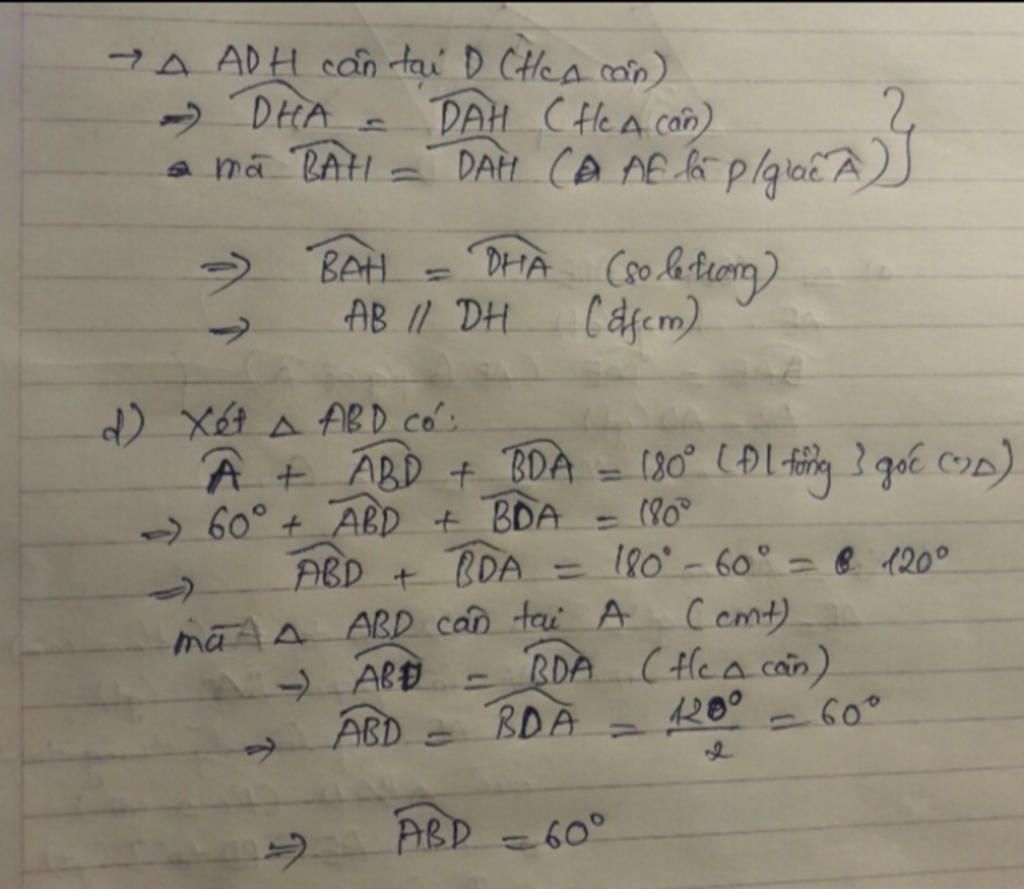 → Δ ADH cân tại D (t/c Δ cân)
⇒ DHA = DAH (t/c Δ cân)
mà BAH = DAH (AE là p/giác A)
⇒ BAH = DHA (so le trong)
⇒ AB // DH (đfcm)
d) Xét Δ ABD có:
A + ABD + BDA = 180° (ĐL tổng 3 góc Δ)
⇒ 60° + ABD + BDA = 180°
⇒ ABD + BDA = 180° - 60° = 120°
mà Δ ABD cân tại A (cmt)
⇒ ABD = BDA (t/c Δ cân)
⇒ ABD = BDA = 120°/2 = 60°
⇒ ABD = 60°